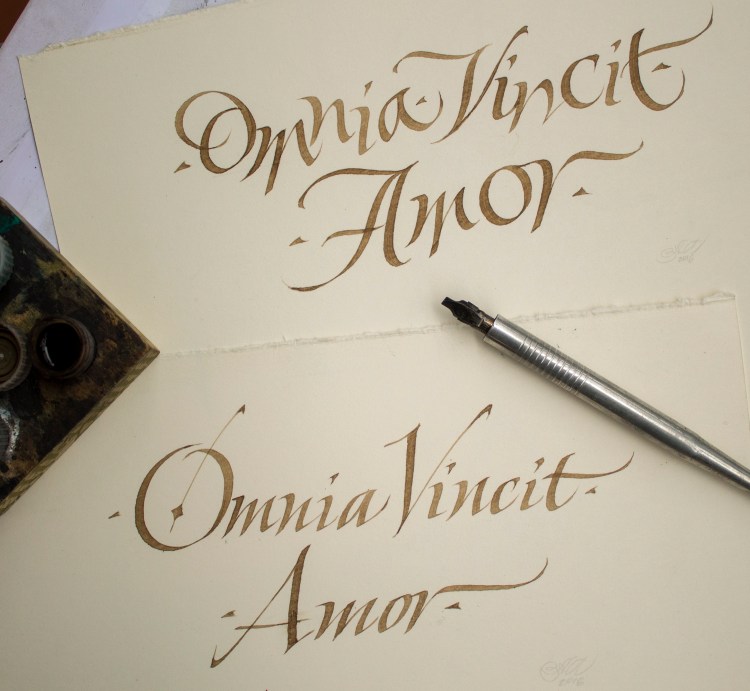 Omnia Vincit
Amor
Omnia Vincit
Amor